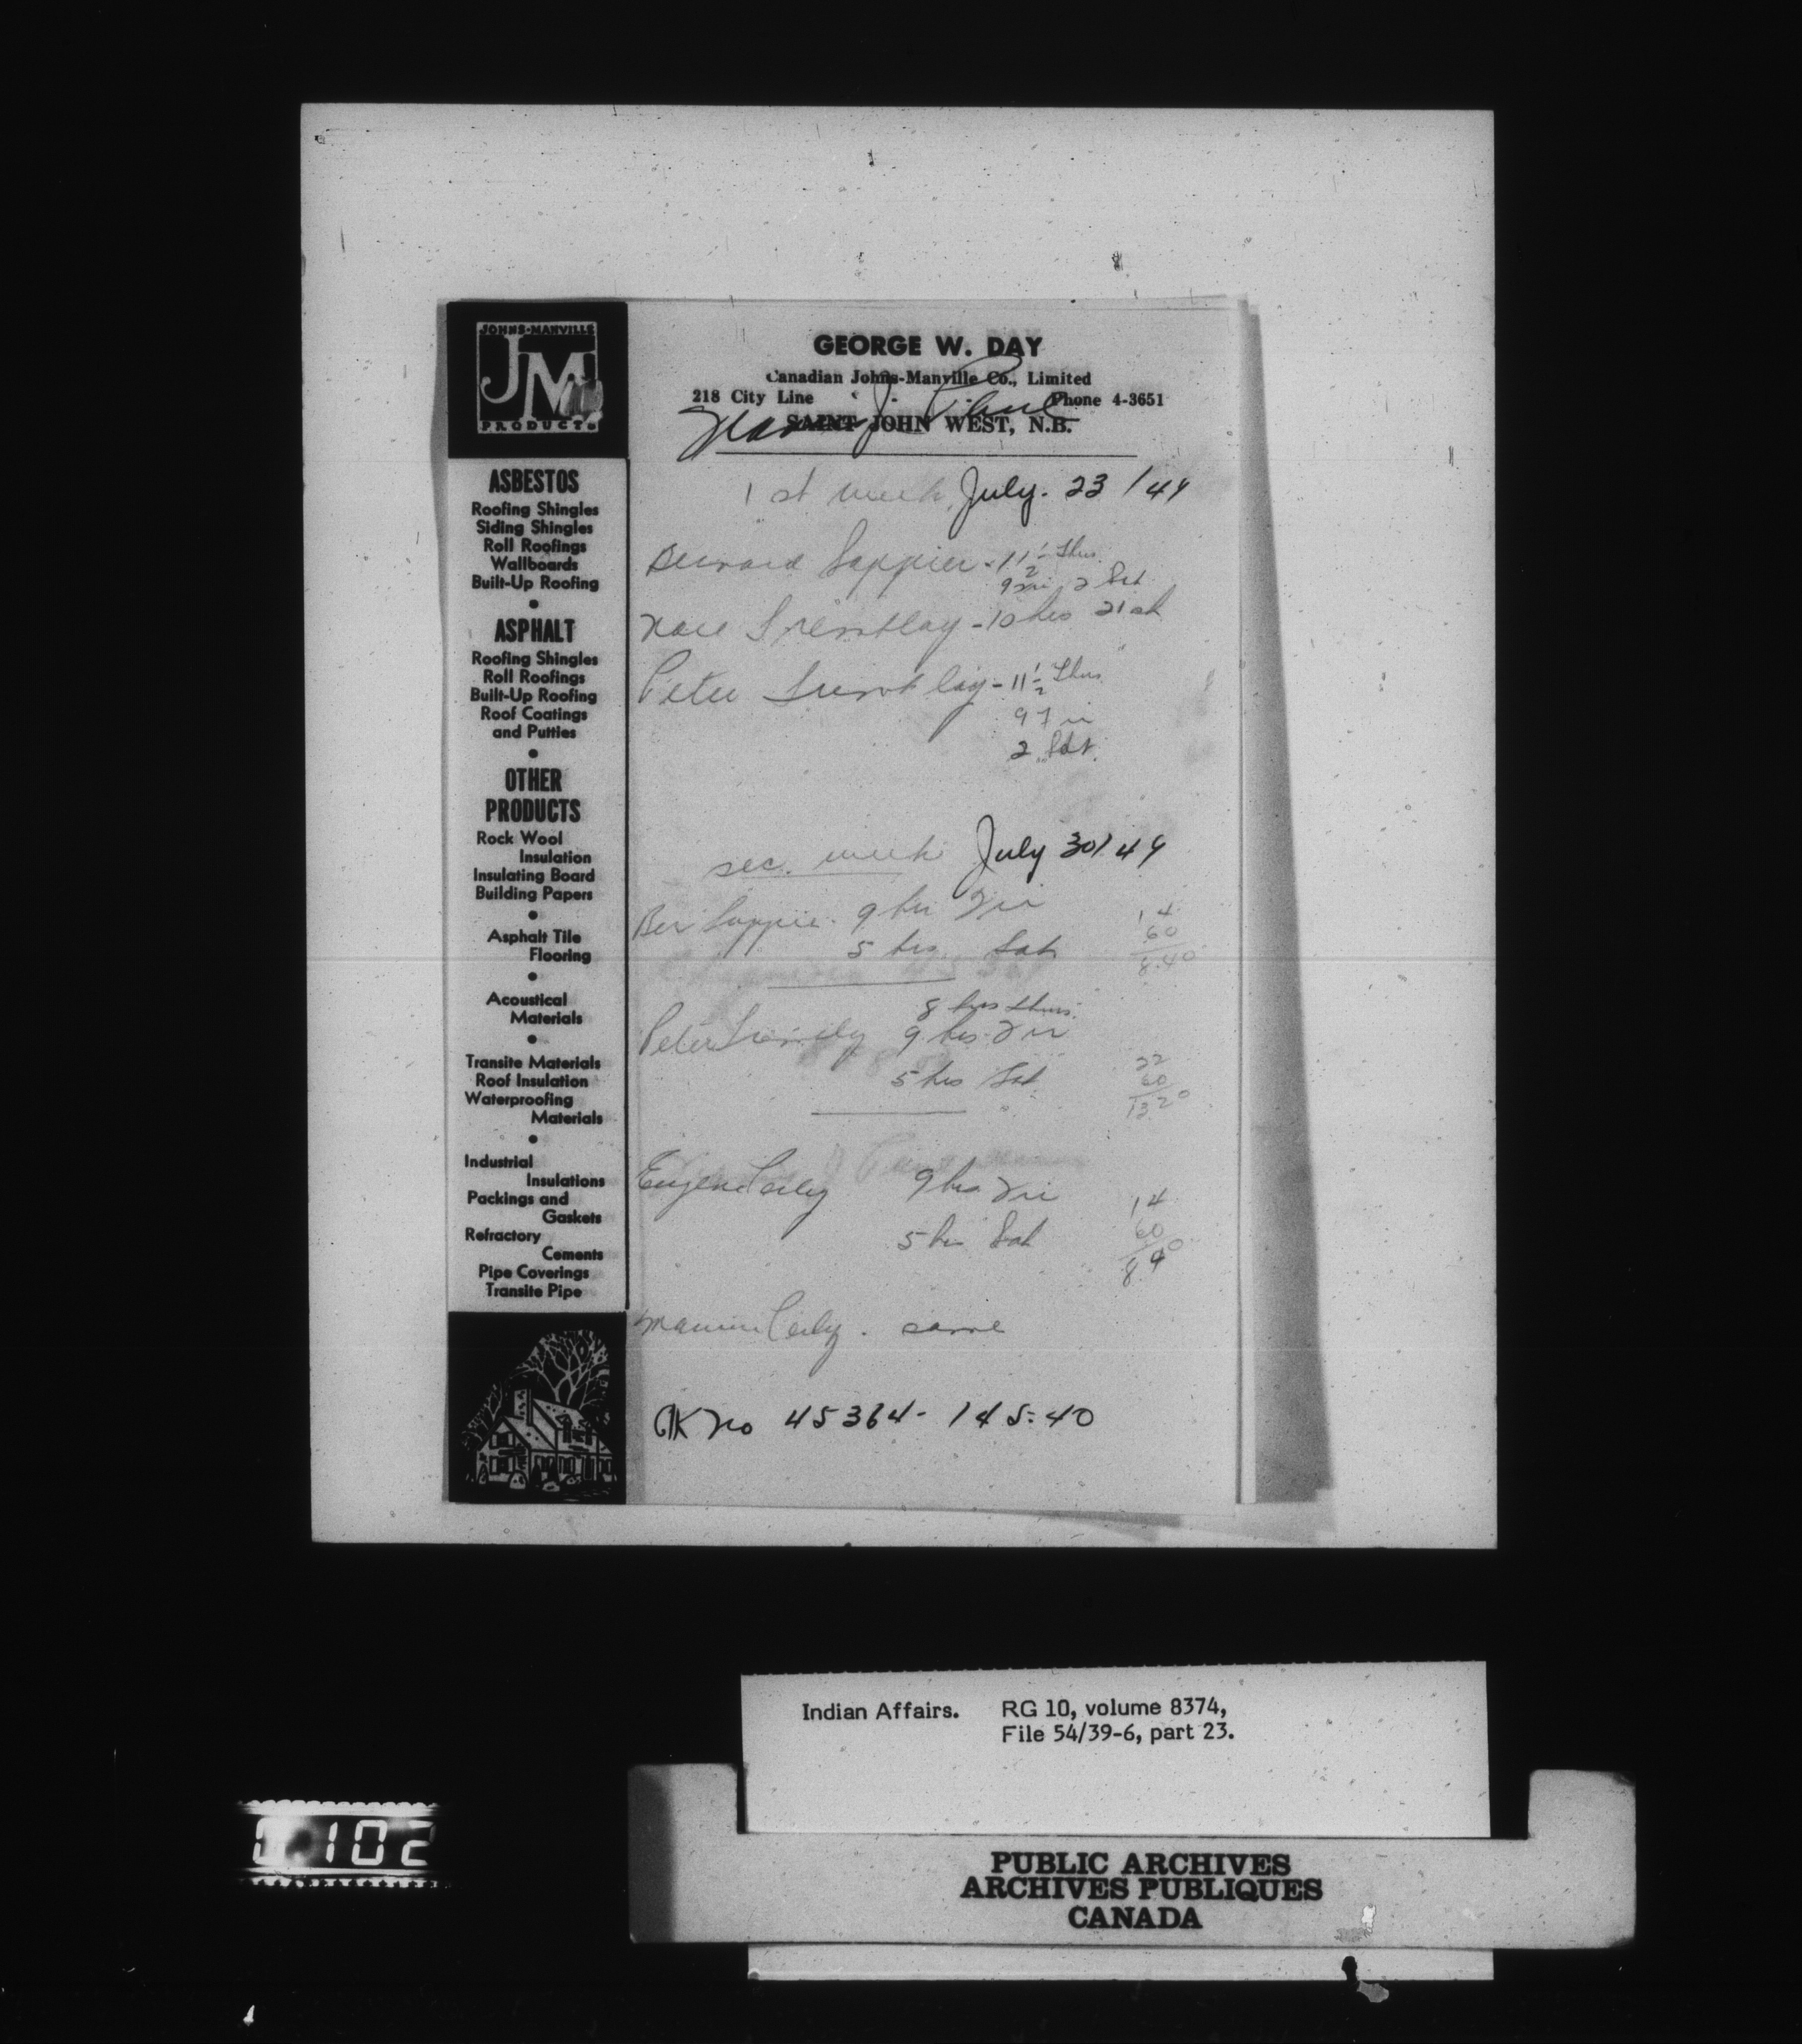 JOHNS-MANVILLE
JM
PRODUCTS
GEORGE W. DAY
Canadian Johns-Manville Co., Limited
218 City Line - - Phone 4-3651
SAINT JOHN WEST, N.B.
ASBESTOS
Roofing Shingles
Siding Shingles
Roll Roofings
Wallboards
Built-Up Roofing
ASPHALT
Roofing Shingles
Roll Roofings
Built-Up Roofing
Roof Coatings
and Putties
OTHER
PRODUCTS
Rock Wool
Insulation
Insulating Board
Building Papers
Asphalt Tile
Flooring
Acoustical
Materials
Transite Materials
Roof Insulation
Waterproofing
Materials
Industrial
Insulations
Packings and
Gaskets
Refractory
Cements
Pipe Coverings
Transite Pipe
1st week July. 23/49
Bernard Sappier - 11 1/2 Thurs.
9 Fri 2 Sat
- 10 hrs
Peter - 11 1/2 Thurs.
9 Fri
2 Sat.
sec. week July 30/49
Ber Sappie. 9 hrs Fri
5 hrs Sat
14
60
8.40
8 hrs Thurs.
Peter 9 hrs. Fri
5 hrs Sat.
22
60
13.20
Eugene 9 hrs Fri
5 hrs Sat
14
60
8.40
same
CK No 45364 - 145.40
Indian Affairs. RG 10, volume 8374,
File 54/39-6, part 23.
PUBLIC ARCHIVES
ARCHIVES PUBLIQUES
CANADA
102